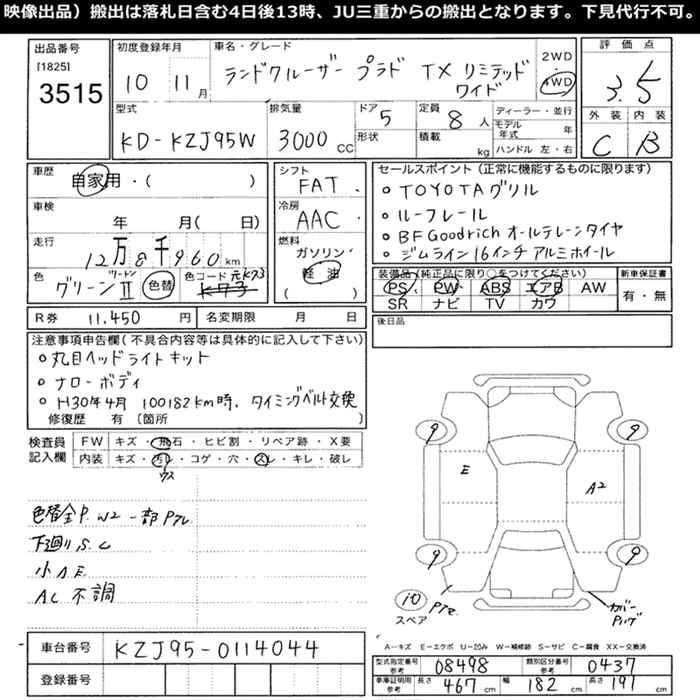 映像出品）搬出は落札日含む4日後13時、JU三重からの搬出となります。下見代行不可。
出品番号
[1825]
3515
初度登録年月
10 11月
車名・グレード
ランドクルーザー プラド TX リミテッド
ワイド
2WD
・
4WD
評価点
3.5
外装 内装
C B
型式
KD-KZJ95W
排気量
3000 CC
ドア
5
形状
定員
8 人
積載
kg
ディーラー・並行
モデル年式 年
ハンドル 左・右
車歴
自家用・( )
車検
年 月( 日)
走行
12万8千960km
色
グリーンII
ツートン
色替
色コード 元K73
K73
シフト
FAT
冷房
AAC
燃料
ガソリン
軽油
( )
セールスポイント（正常に機能するものに限ります）
○ TOYOTAグリル
○ ルーフレール
○ BFGoodrich オールテレーンタイヤ
○ ジムライン16インチアルミホイール
装備品（純正品に限り○をつけてください）
PS PW ABS エアB AW
SR ナビ TV カワ
新車保証書
有・無
R券 11,450 円
名変期限 月 日
後日品
注意事項申告欄（不具合内容等は具体的に記入して下さい）
○ 丸目ヘッドライトキット
○ ナローボディ
○ H30年4月 100182km時、タイミングベルト交換
修復歴 有〔箇所
検査員
記入欄
FW キズ・飛石・ヒビ割・リペア跡・X要
内装 キズ・汚レ・コゲ・穴・スレ・キレ・破レ
ウス
色替全P. W2 一部Pアレ
下廻りS.C
小AE
AC 不調
9 9
E A2
9 9
10
スペア
Pアレ
カバー
Pハゲ
車台番号 KZJ95-0114044
登録番号
A－キズ E－エクボ U－凹み W－補修跡 S－サビ C－腐食 XX－交換済
型式指定番号
参考
08498
類別区分番号
参考
0437
車庫証明用
参考
長さ 467 cm
幅 182 cm
高さ 191 cm